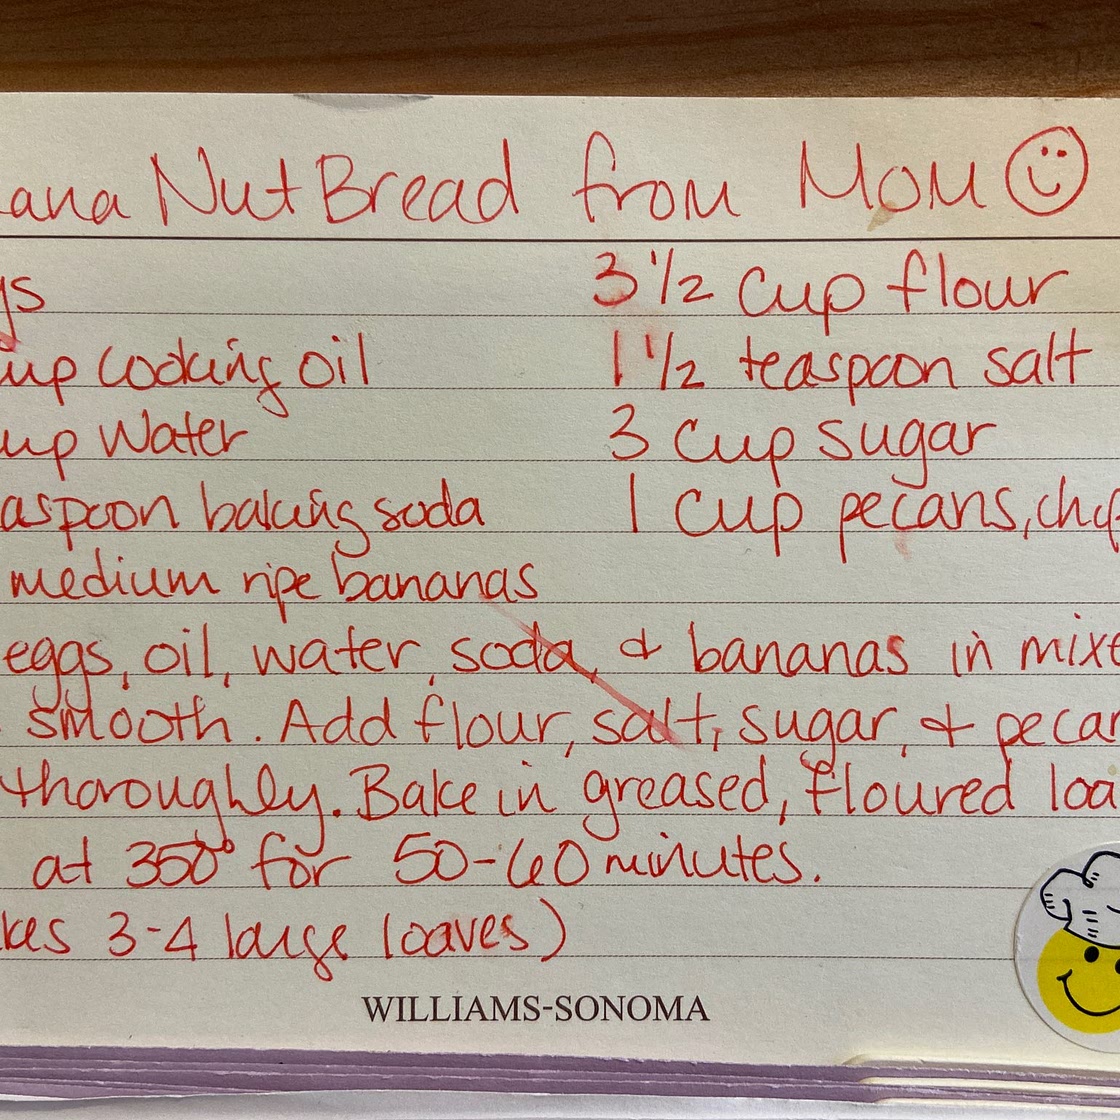 ana Nut Bread from Mom
gs 3 1/2 cup flour
up cooking oil 1 1/2 teaspoon salt
up water 3 cup sugar
aspoon baking soda 1 cup pecans, cho
medium ripe bananas
eggs, oil, water, soda, & bananas in mixe
smooth. Add flour, salt, sugar, & pecan
thoroughly. Bake in greased, floured loa
at 350° for 50-60 minutes.
kes 3-4 large loaves)
WILLIAMS-SONOMA